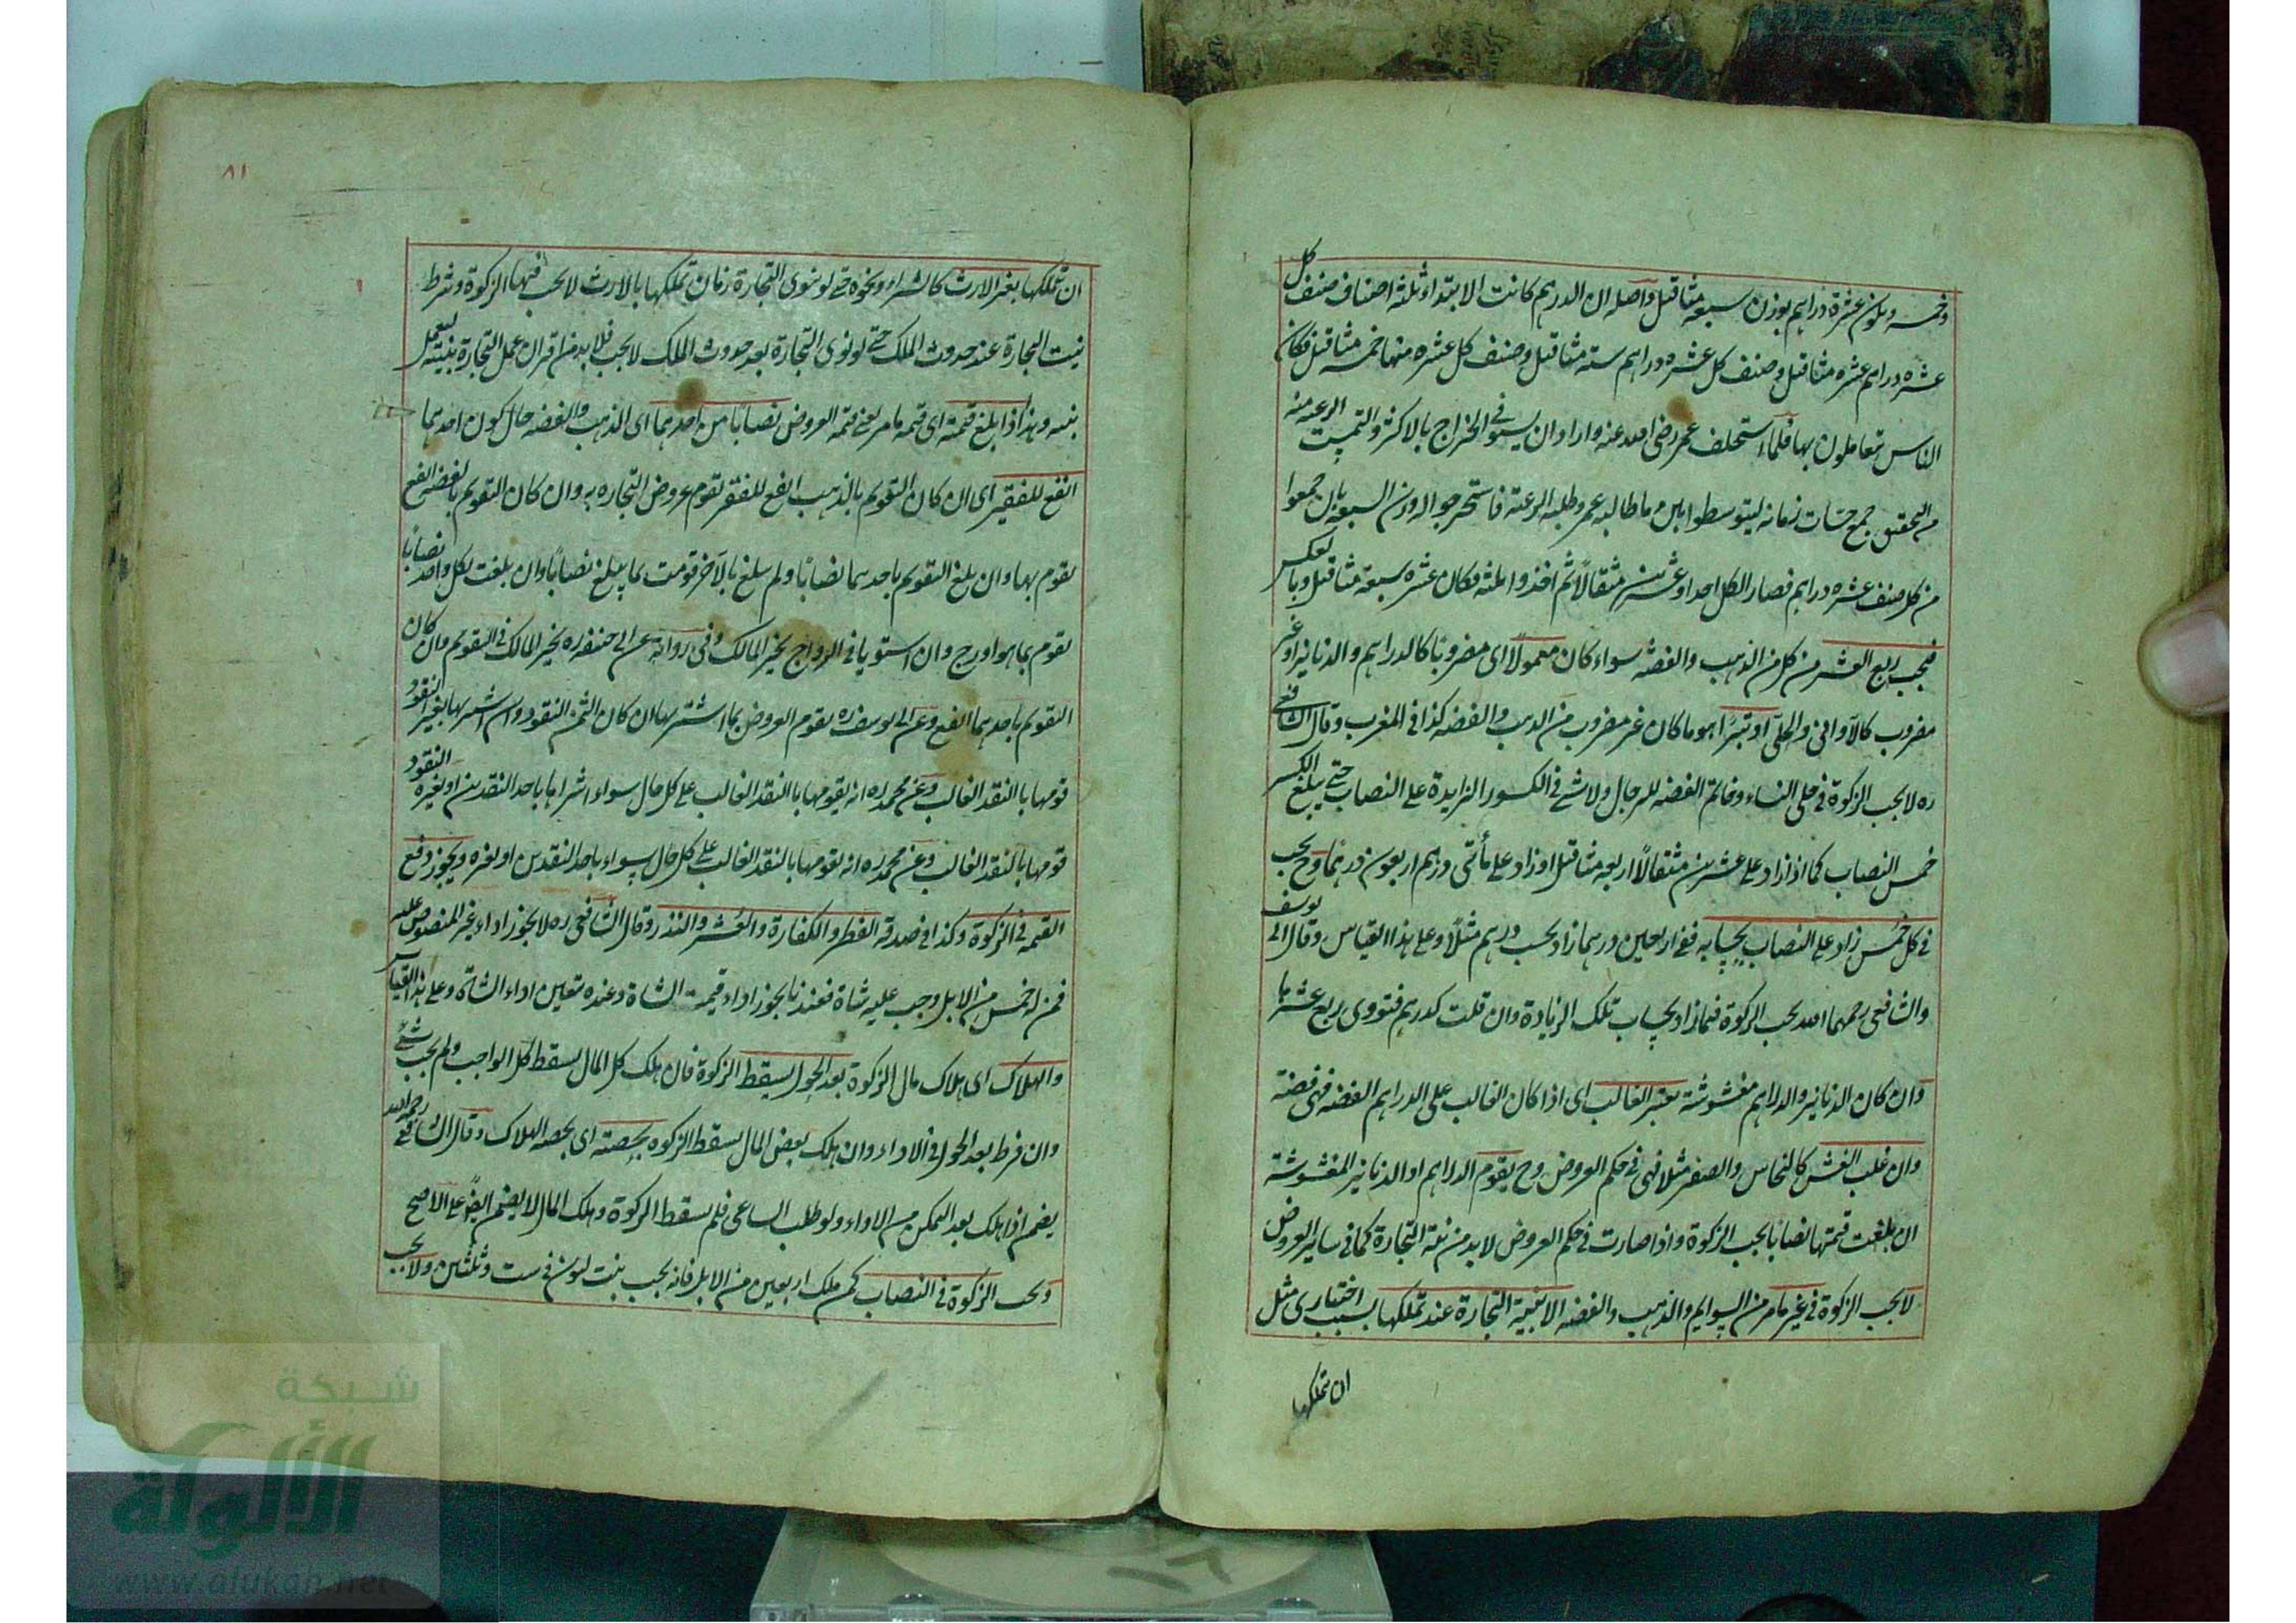 وخمسه ويكون عشرة دراهم بوزن سبعة مثاقيل واصله ان الدرهم كانت الابتداء ثلثة اصناف صنف كل
عشره دراهم عشره مثاقيل وصنف كل عشره دراهم ستة مثاقيل وصنف كل عشره منها خمسه مثاقيل فكان
الناس يتعاملون بها فلما استخلف عمر رضى الله عنه واراد ان يستوفى الخراج بالاكثر والتمست الرعيه منه
التحقيق جمع حساب زمانه ليتوسطوا بين ما طالبه عمر وطلبه الرعية فاستخرجوا له وزن السبعة بان جمعوا
من كل صنف عشره دراهم فصار الكل احدا وعشرين مثقالا ثم اخذوا ثلثه فكان عشره سبعة مثاقيل وبالعكس
فيجب ربع العشر من كل من الذهب والفضة سواء كان معمولا اى مضروبا كالدراهم والدنانير او غير
مضروب كالاوانى والحلى او تبرا هو ما كان غير مضروب من الذهب والفضه كذا فى المغرب وقال الشافعى
ره لا يجب الزكوة فى حلى النساء وخاتم الفضه للرجال ولا شئ فى الكسور الزايدة على النصاب حتى يبلغ الكسر
خمس النصاب كما اذا زاد على عشرين مثقالا اربعه مثاقيل او زاد على مأتى درهم اربعون درهما وح يجب
فى كل خمس زاد على النصاب بحسابه ففى اربعين درهما زاد يجب درهم مثلا وعلى هذا القياس وقال ابى يوسف
والشافعى رحمهما الله يجب الزكوة فيما زاد بحساب تلك الزيادة وان قلت كدرهم فتودى ربع عشرها
وان كان الدنانير والدراهم مغشوشة يعتبر الغالب اى اذا كان الغالب على الدراهم الفضه فهى فضة
وان غلب الغش كالنحاس والصفر مثلا فهى فى حكم العروض وح يقوم الدراهم او الدنانير المغشوشة
ان بلغت قيمتها نصابا يجب الزكوة واذا صارت فى حكم العروض لا بد من نية التجارة كما فى ساير العروض
لا يجب الزكوة فى غير ما مر من السوايم والذهب والفضه الا بنية التجارة عند تملكها بسبب اختيارى مثل
ان تملكها
٨١
ان تملكها بغير الارث كالشراء ونحوه حتى لو نوى التجارة زمان تملكها بالارث لا يجب فيها الزكوة وشرط
نيت التجارة عند حدوث الملك حتى لو نوى التجارة بعد حدوث الملك لا يجب فلا بد من اقران عمل التجارة بنيته ليعمل
بنيه وهذا اذا بلغ قيمته اى قيمه ما مر يعنى قيمه العروض نصابا من احدهما اى الذهب والفضه حال كون احدهما
انفع للفقير اى ان كان التقويم بالذهب انفع للفقير تقوم عروض التجاره به وان كان التقويم بالفضه انفع
يقوم بها وان بلغ التقويم باحدهما نصابا ولم يبلغ بالآخر قومت بما يبلغ نصابا وان بلغت بكل واحد نصابا
يقوم بما هو اروج وان استويا فى الرواج يخير المالك وفى رواية عن ابى حنيفه ره يخير المالك فى التقويم وان كان
التقويم باحدهما انفع وعن ابى يوسف ره يقوم العروض بما اشتريها ان كان الثمن النقود وان اشتريها بغير النقود
قومها بالنقد الغالب وعن محمد ره انه يقومها بالنقد الغالب على كل حال سواء اشراها باحد النقدين او بغيره النقود
قومها بالنقد الغالب وعن محمد ره انه يقومها بالنقد الغالب على كل حال سواء باحد النقدين او بغيره ويجوز دفع
القيمه فى الزكوة وكذا فى صدقه الفطر والكفارة والعشر والنذر وقال الشافعى ره لا يجوز اداء غير المنصوص عليه
فمن له خمس من الابل وجب عليه شاة فعندنا يجوز اداء قيمت الشاة وعنده تعين اداء الشاة وعلى هذا القياس
والهلاك اى هلاك مال الزكوة بعد الحول يسقط الزكوة فان هلك كل المال يسقط كل الواجب ولم يجب شئ
وان فرط بعد الحول فى الاداء وان هلك بعض المال يسقط الزكوه بحصته اى بحصه الهلاك وقال الشافعى رحمه الله
يضمن اذا هلك بعد التمكن من الاداء ولو طلب الساعى فلم يسقط الزكوة وهلك المال لا يضمن ايضا على الاصح
وتجب الزكوة فى النصاب كمن ملك اربعين من الابل فانه يجب بنت لبون فى ست وثلثين ولا يجب
شبكة
الألوكة
www.alukah.net